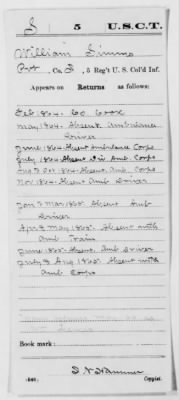 S | 5 | U.S.C.T.
William Simms
Pvt, Co. I, 5 Reg't U. S. Col'd Inf.
Appears on Returns as follows:
Feb 1864. Co Cook
May 1864. Absent Ambulance
Driver
June 1864 Absent Ambulance Corps
July 1864 Absent in Amb Corps
Aug to Oct 1864 Absent Amb. Corps
Nov 1864 Absent Amb
Driver
Jan & Mar 1865 Absent Amb
Driver
Apr & May 1865. Absent with
Amb Train
June 1865 Absent Amb Driver
July & Aug 1865 Absent with
Amb Corps
Book mark:
Copyist.